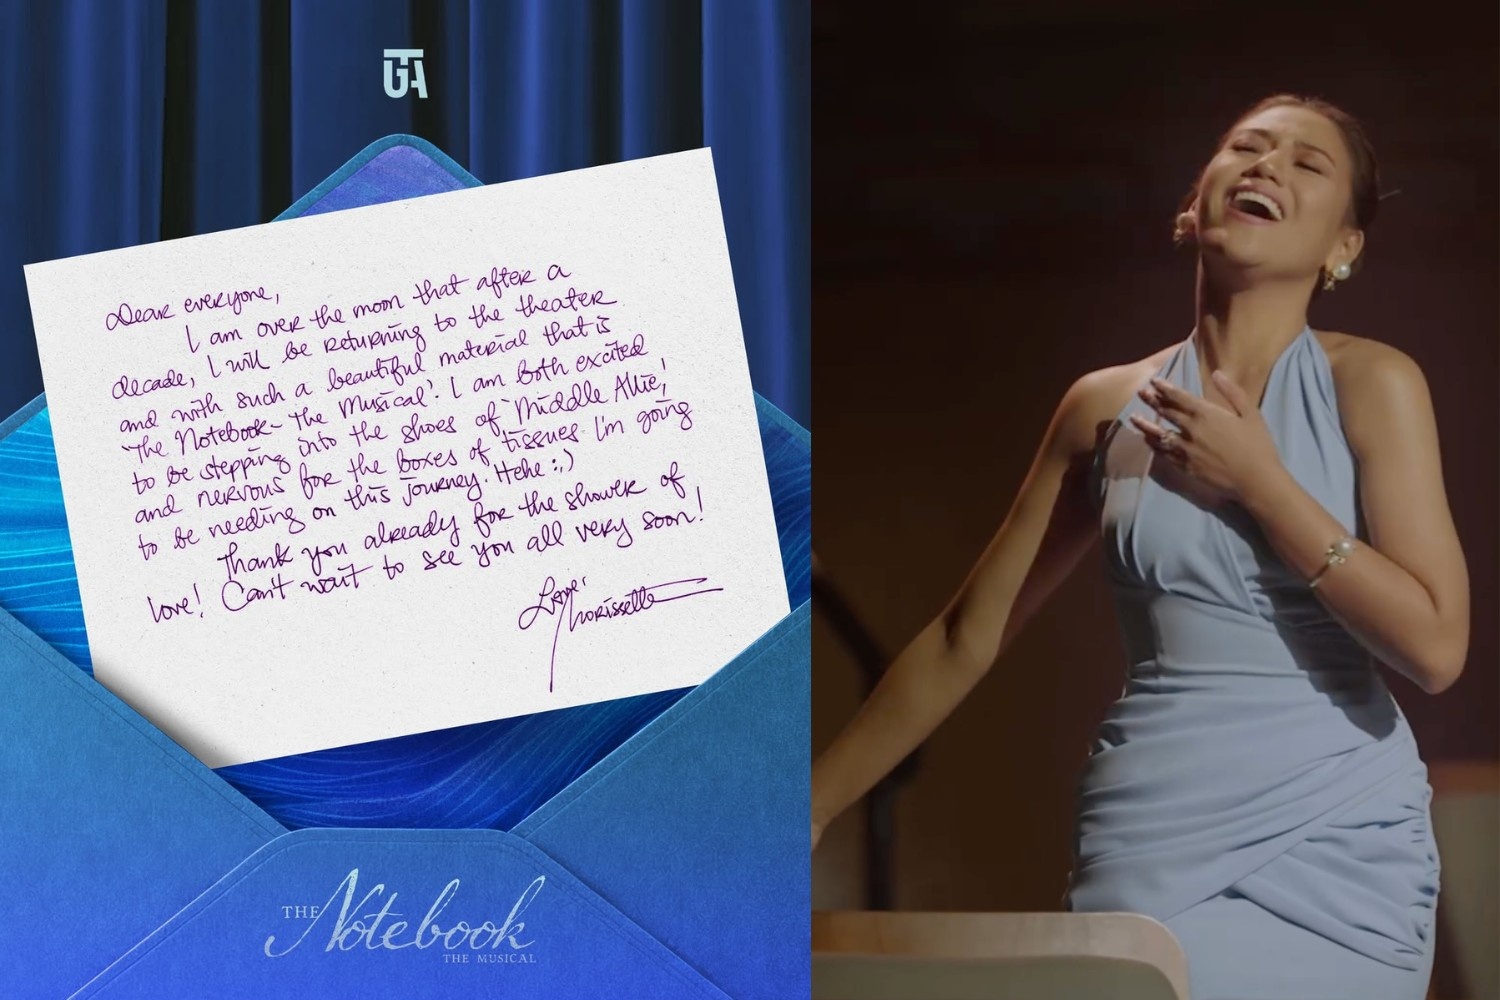 GTA
Dear everyone,
I am over the moon that after a
decade, I will be returning to the theater
and with such a beautiful material that is
'The Notebook - The Musical'. I am both excited
to be stepping into the shoes of 'Middle Allie',
and nervous for the boxes of tissues I'm going
to be needing on this journey. Hehe :,)
Thank you already for the shower of
love! Can't wait to see you all very soon!
Love,
Morissette
THE Notebook
THE MUSICAL